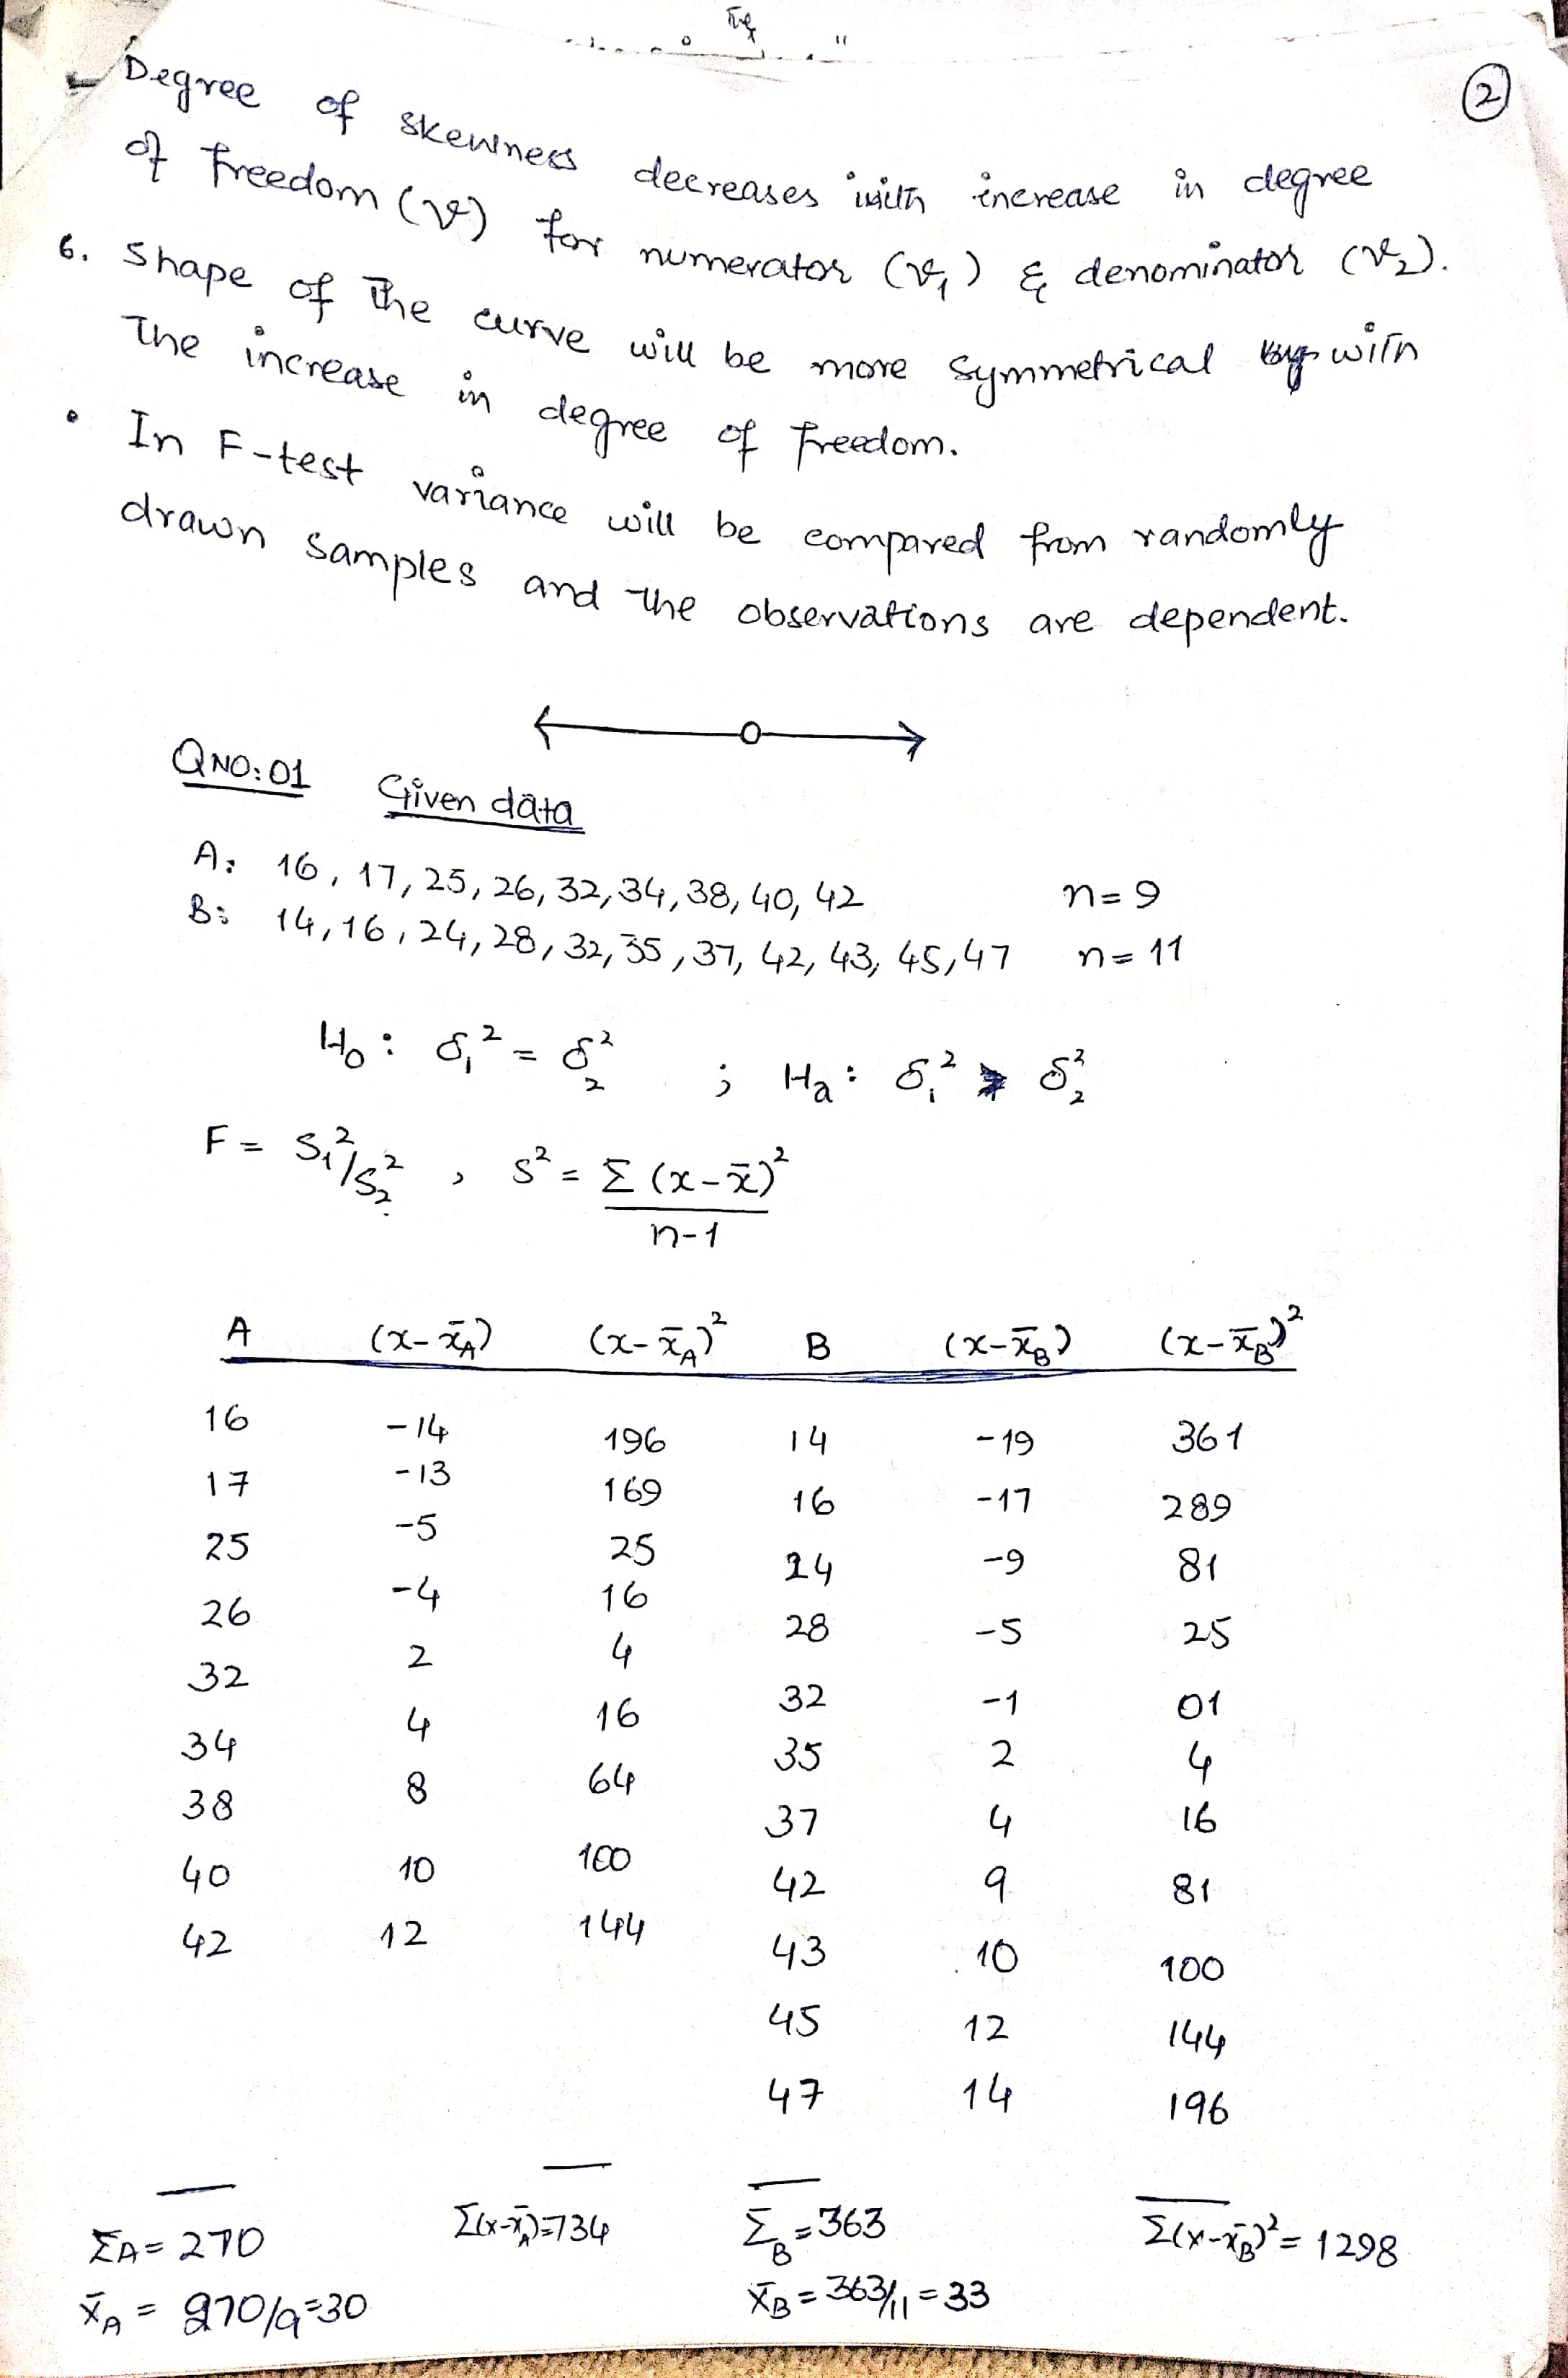 ②
Degree of skewness decreases with increase in degree
of freedom (v) for numerator (v₁) & denominator (v₂).
6. Shape of the curve will be more symmetrical with
the increase in degree of freedom.
• In F-test variance will be compared from randomly
drawn samples and the observations are dependent.
Q NO: 01 Given data
A: 16, 17, 25, 26, 32, 34, 38, 40, 42 n=9
B: 14, 16, 24, 28, 32, 35, 37, 42, 43, 45, 47 n=11
H₀ : δ₁² = δ₂² ; Ha : δ₁² > δ₂²
F = S₁²/S₂² , S² = Σ(x-x̄)²
n-1
A (x-x̄A) (x-x̄A)² B (x-x̄B) (x-x̄B)²
16 -14 196 14 -19 361
17 -13 169 16 -17 289
25 -5 25 24 -9 81
26 -4 16 28 -5 25
32 2 4 32 -1 01
34 4 16 35 2 4
38 8 64 37 4 16
40 10 100 42 9 81
42 12 144 43 10 100
45 12 144
47 14 196
ΣA = 270 Σ(x-x̄A)=734 ΣB = 363 Σ(x-x̄B)² = 1298
x̄A = 270/9=30 x̄B = 363/11 = 33